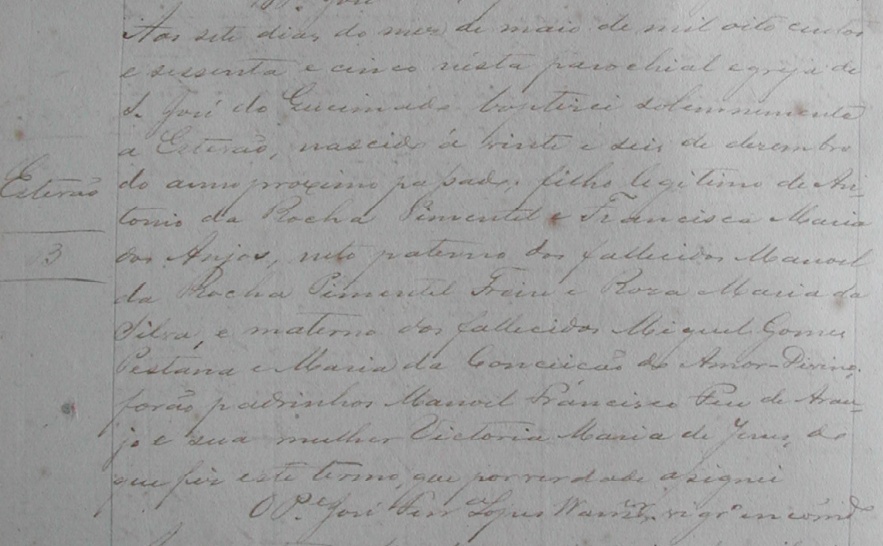 Aos sete dias do mez de maio de mil oito centos
e sessenta e cinco nésta parochial egreja de
S. José do Queimado baptisei solemnemente
a Estevão, nascido á vinte e seis de dezembro
do anno proximo passado, filho legitimo de An-
tonio da Rocha Pimentel e Francisca Maria
dos Anjos, neto paterno dos fallecidos Manoel
Estevão
da Rocha Pimentel Freire e Roza Maria da
3
Silva, e materno dos fallecidos Miguel Gomes
Pestana e Maria da Conceicão do Amor-Divino,
forão padrinhos Manoel Francisco de Arau-
jo e sua mulher Victoria Maria de Jesus, do
que fiz este termo, que por verdade asignei
O Pe. José Lopes vigr.º encõmd